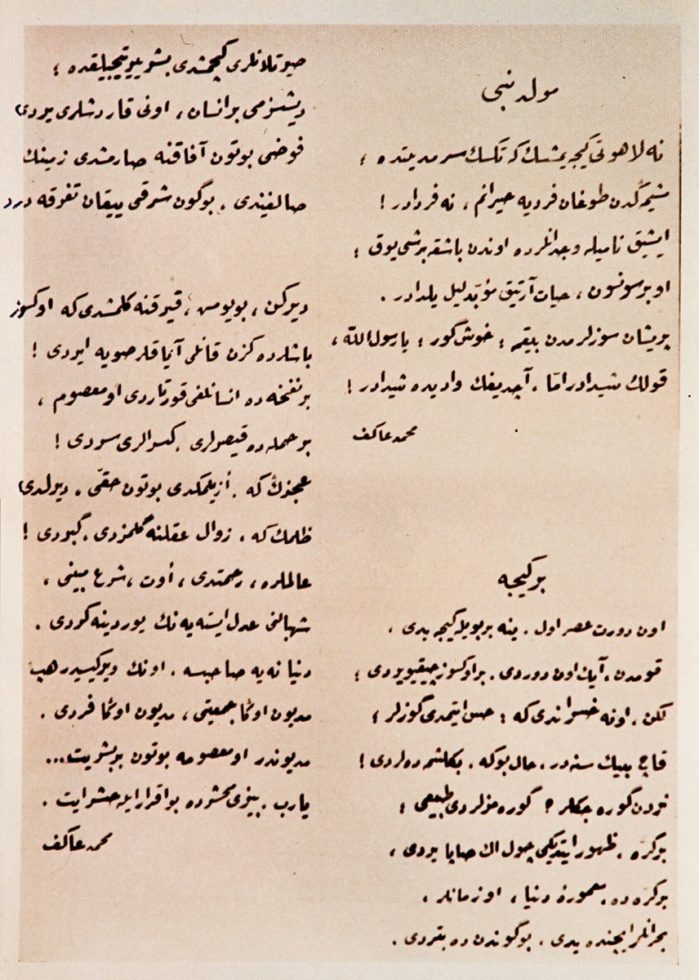 مولد نبی
نه لاهوتی کیجه یمشسك که تكسك سرمدیتده ؛
مشیمه كدن طوغان فردیه حیرانم ، نه فردادر !
ایشیق نامیله وجدانلرده اوندن باشقه برشی یوق ؛
او بر سونسون ، حیات آرتیق مؤبد لیل یلدادر .
پریشان سوزلرمدن بیقمه ؛ خوش گور ؛ یا رسول الله ،
قولك شیدادر امّا ، آجدیغك وادیده شیدادر !
محمد عاكف
بر كیجه
اون دورت عصر اول ، ینه بر بویله كیجه یدی ،
قومدن ، آیك اون دوردی ، بر اوكسوز چیقیویردی ؛
لكن ، او نه خسراندی كه : حس ایتمدی گوزلر ؛
قاچ بیك سنه در ، حال بوكه ، بكلشمه ده لردی !
نردن گوره جكلر ؟ گوره مزلردی طبیعی ؛
بر كره ، ظهور ایتدیكی چول اك صاپا یردی ،
بر كره ده ، معمورهٔ دنیا ، او زمانلر ،
بحرانلر ایچنده یدی ، بوگوندن ده بتردی .
صیرتلانلری كچمشدی بشر ییرتیجیلیقده ؛
دیشسزمی بر انسان ، اونی قارداشلری یردی
فوضی بوتون آفاقنه صارمشدی زمینك
صالغیندی ، بوگون شرقی ییقان تفرقه دردی
دیركن ، بویومش ، قیرقنه كلمشدی كه اوكسوز
باشلرده كزن قانلی آیاقلر صویه ایردی !
بر نفخه ده انسانلغی قورتاردی او معصوم ،
بر حمله ده قیصرلری ، كسرالری سردی !
عجزك كه ، أزیلمكدی بوتون حقّی ، دیرلدی
ظلمك كه ، زوال عقلنه گلمزدی ، گبردی !
عالملره ، رحمتدی ، أوت ، شرع مبینی ،
شهبالنی عدل ایسته یه نك یوردینه گردی .
دنیا نه یه صاحبسه ، اونك ویرگیسیدر هپ
مدیون اوكا جمعیتی ، مدیون اوكا فردی .
مدیوندر او معصومه بوتون بر بشریت...
یارب ، بیزی محشرده بو اقرار ایله حشر ایت .
محمد عاكف